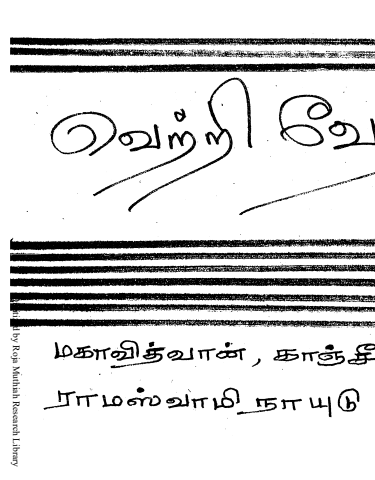 வெற்றி வே
மகாவித்வான், காஞ்சீ
ராமஸ்வாமி நாயுடு
by Roja Muthiah Research Library